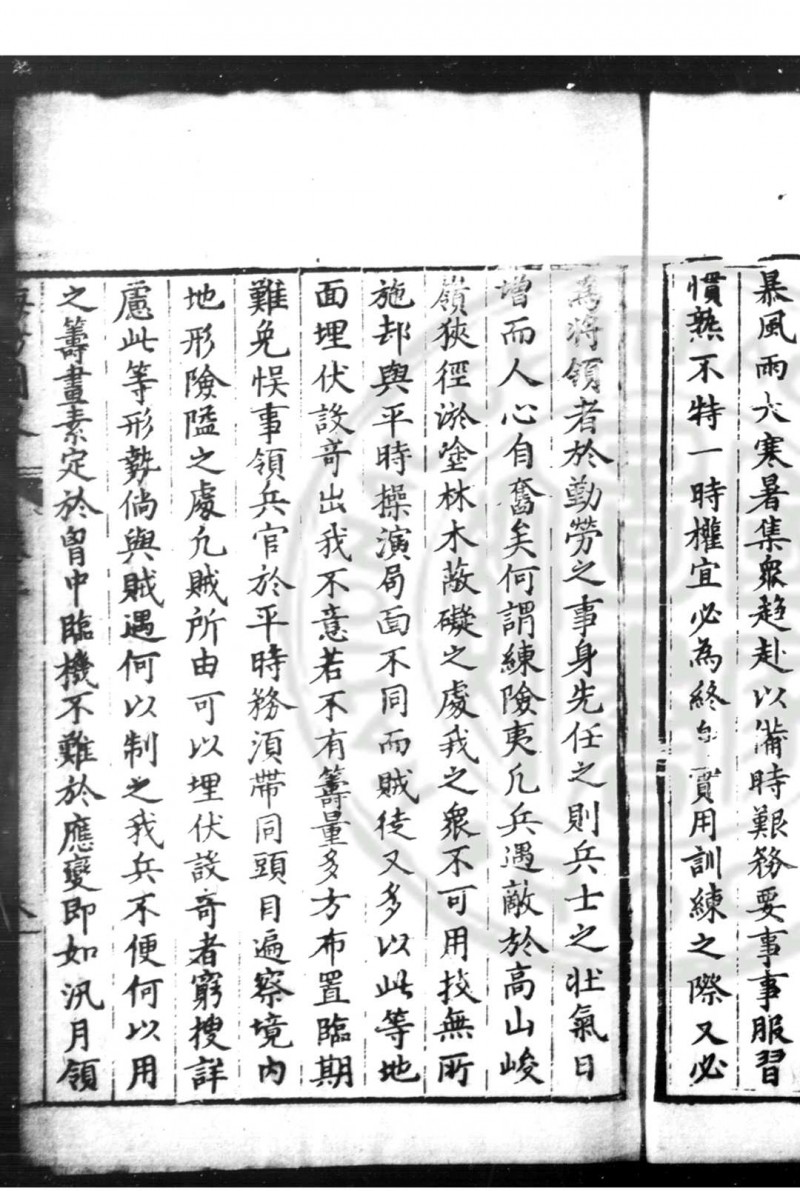 暴風雨大寒暑集衆趋赴以備時艱務要事事服習
慣熟不特一時權宜必為終身實用訓練之際又必
為將領者於勤勞之事身先任之則兵士之壯氣日
增而人心自奮矣何謂練險夷凡兵遇敵於高山峻
嶺狹徑淤塗林木蔽礙之處我之衆不可用技無所
施却與平時操演局面不同而賊徒又多以此等地
面埋伏設奇出我不意若不有籌量多方布置臨期
難免悞事領兵官於平時務湏帶同頭目遍察境内
地形險隘之處凡賊所由可以埋伏設奇者窮搜詳
慮此等形勢倘與賊遇何以制之我兵不便何以用
之籌畫素定於胷中臨機不難於應變即如汛月領